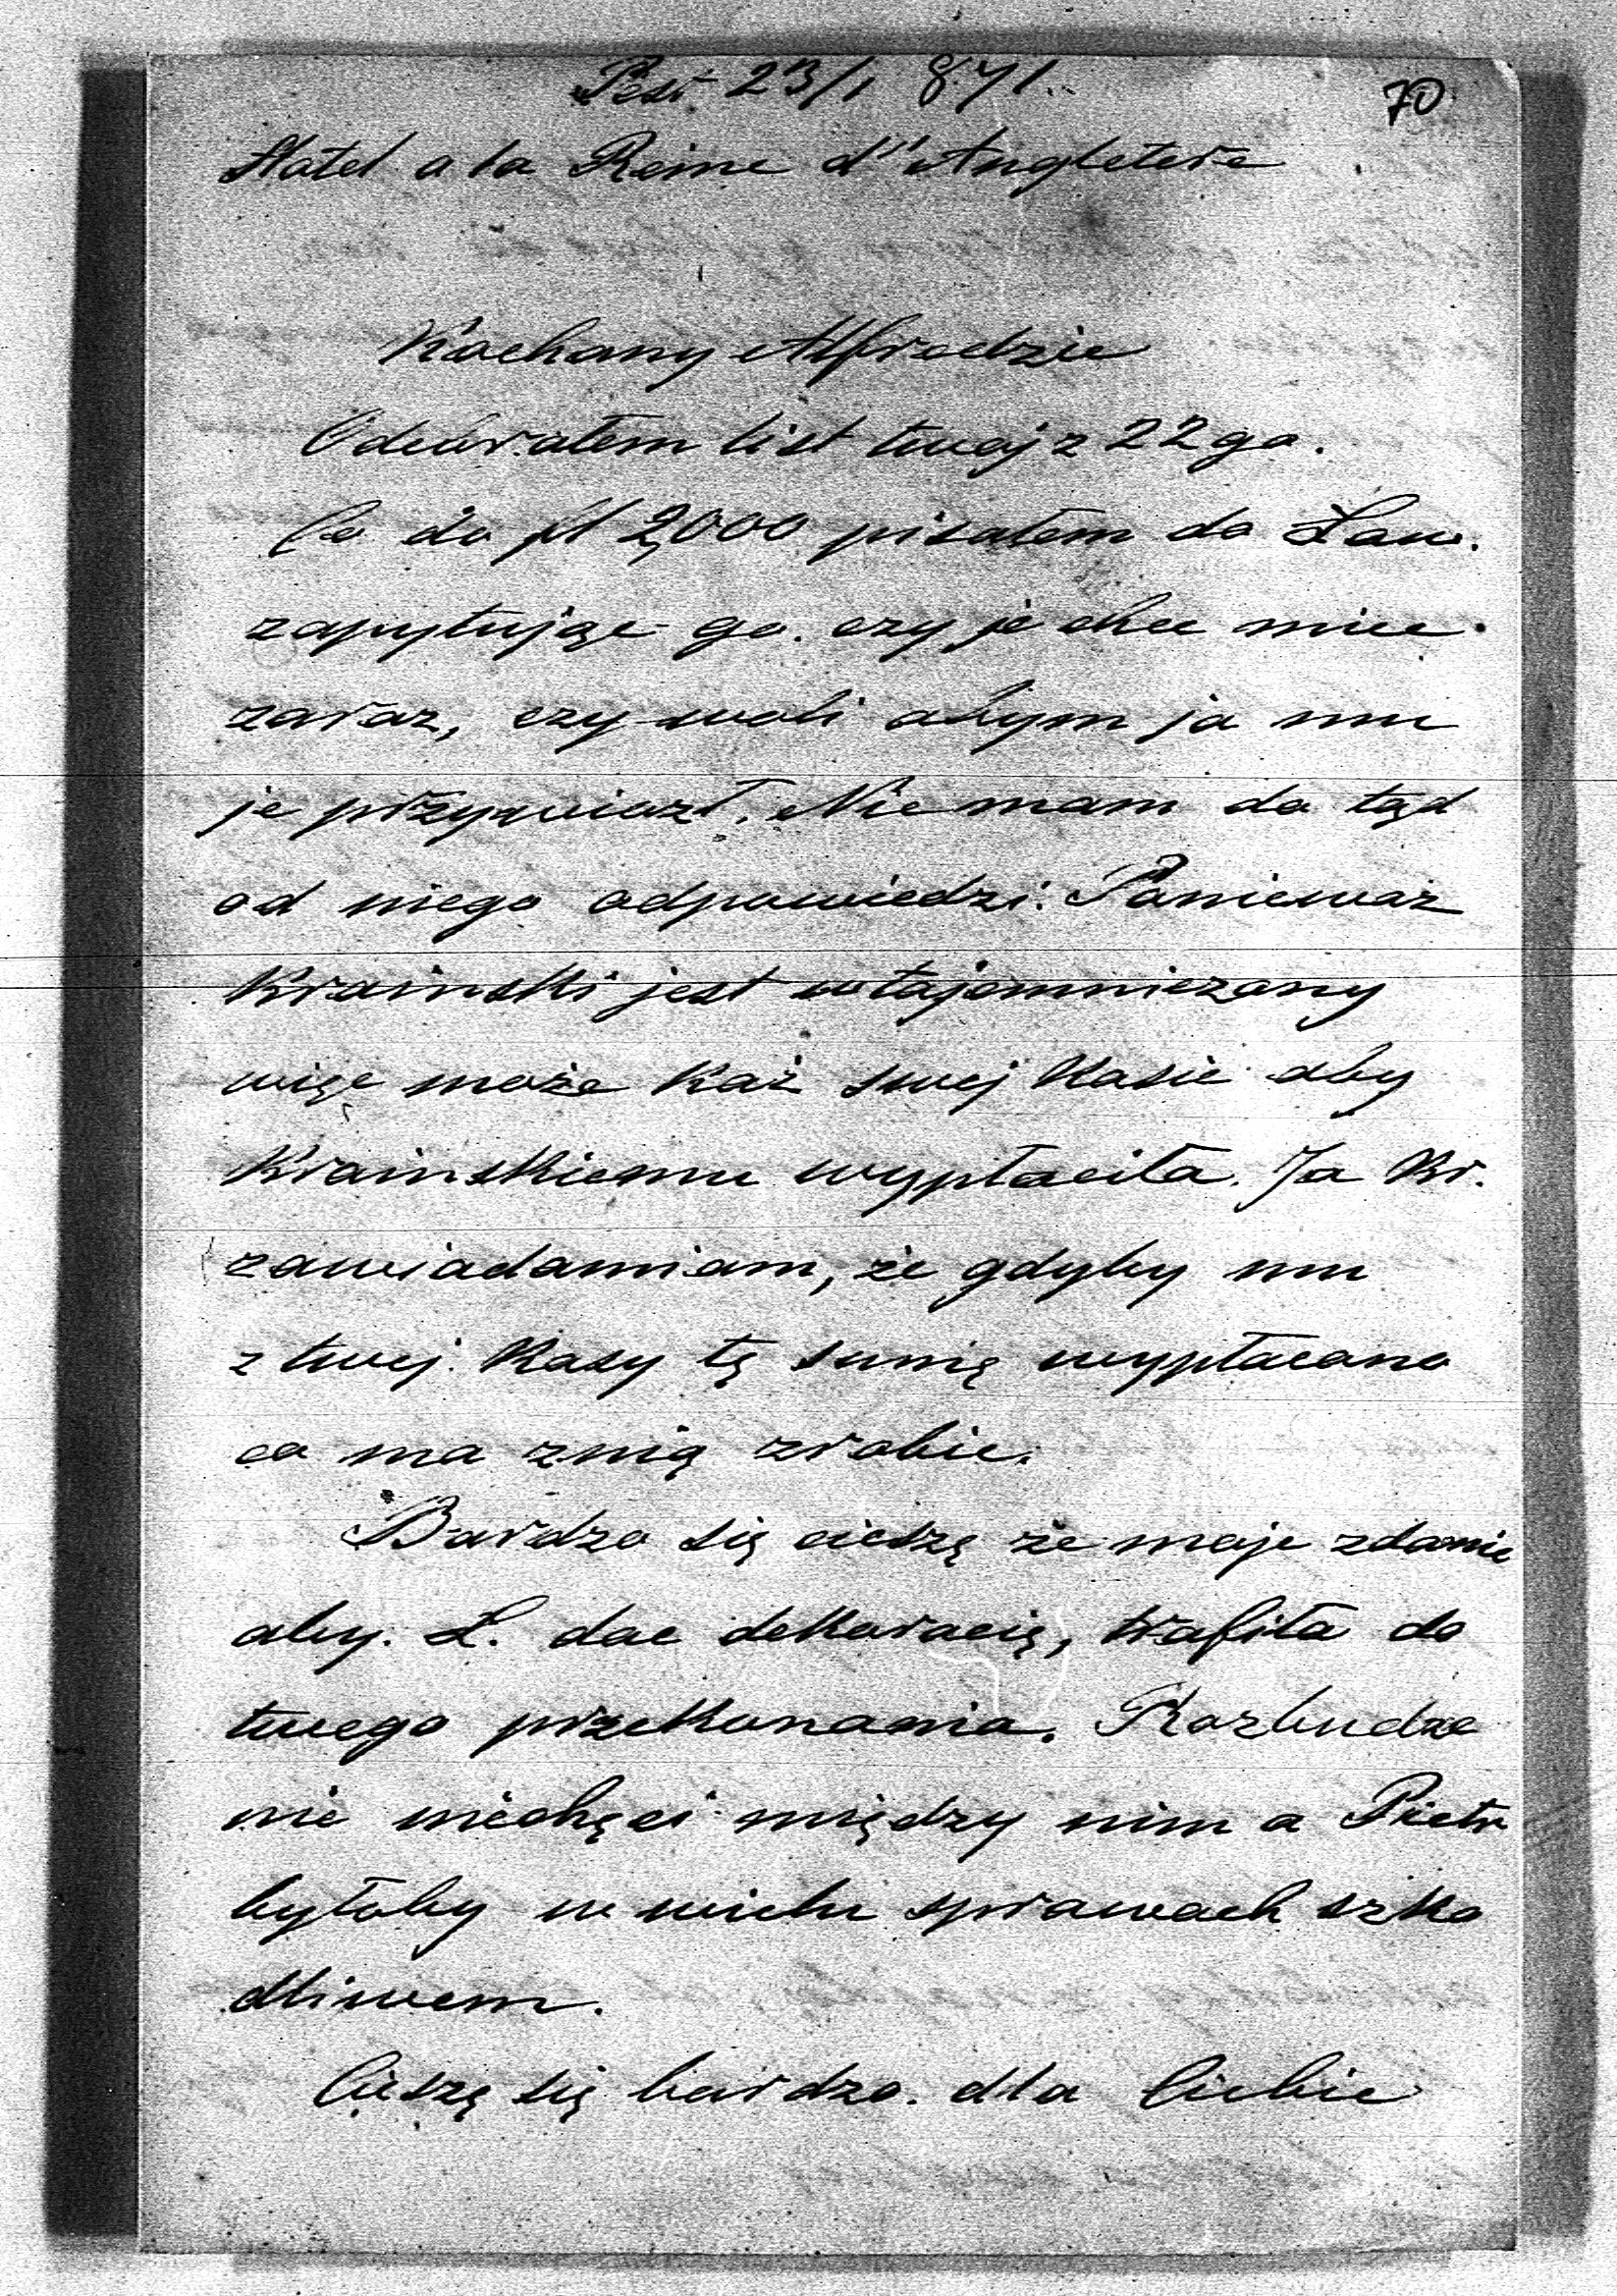 Pest 23/1 871.
70
Hotel a la Reine d'Angletere
Kochany Alfredzie
Odebrałem list twoj z 22go.
Co do fl 2,000 pisałem do Law.
zapytując go. czy je chce miec
zaraz, czy woli abym ja mu
je przywiozł. Nie mam do tąd
od niego odpowiedzi. Poniewaz
Krainski jest wtajemniczony
więc może każ swej Kasie aby
Krainskiemu wypłaciła. Ja Kr.
zawiadamiam, że gdyby mu
z twej Kasy tę sumę wypłacono
co ma z nią zrobic.
Bardzo się cieszę że moje zdanie
aby. L. dac dekoracię, trafiła do
twego przekonania. Rozbudze
nie niechęci między nim a Piotr
byłoby w wielu sprawach szko
dliwem.
Cieszę się bardzo. dla Ciebie